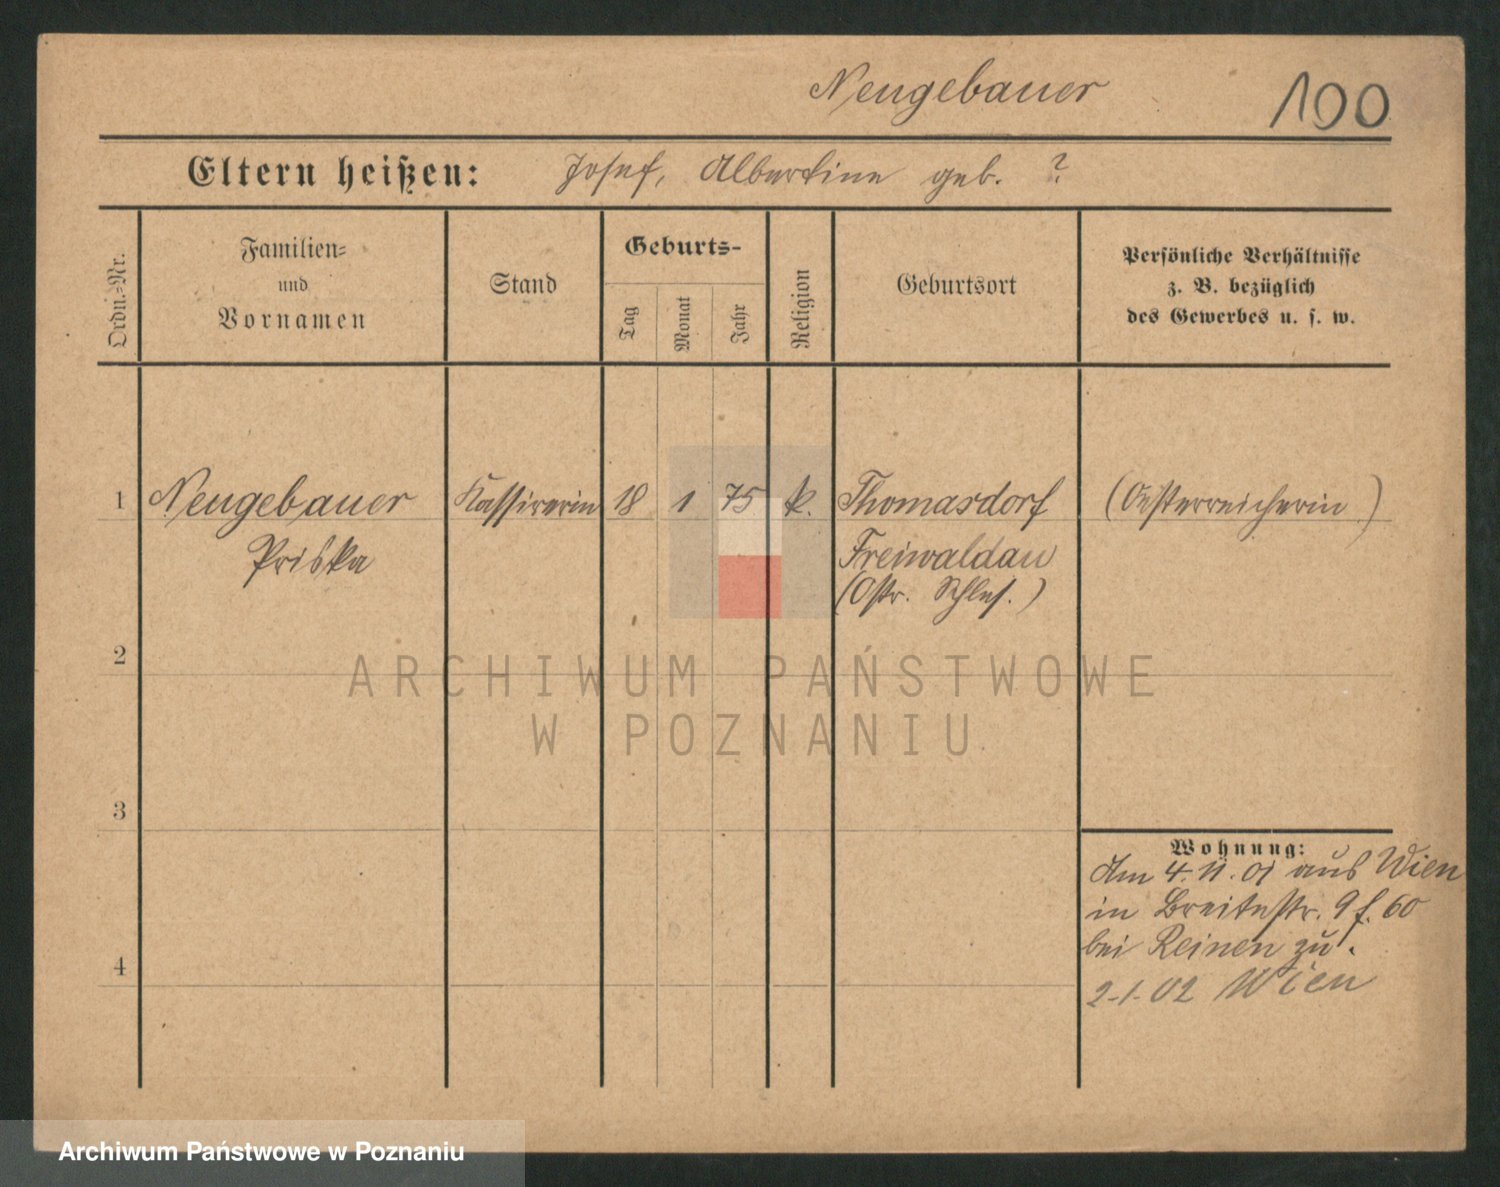 Neugebauer
100
Eltern heißen: Josef, Albertine geb. ?
Ordn.-Nr.
Familien-
und
Vornamen
Stand
Geburts-
Tag
Monat
Jahr
Religion
Geburtsort
Persönliche Verhältnisse
z. B. bezüglich
des Gewerbes u. s. w.
1 Neugebauer Kassirerin 18 1 75 k. Thomasdorf (Oesterreicherin)
Priska Freiwaldau
(Ostr. Schles.)
2
ARCHIWUM PAŃSTWOWE
W POZNANIU
3
Wohnung:
Am 4. 11. 01 aus Wien
in Breitestr. 9 f. 60
bei Reinen zu.
4
2-1-02 Wien
Archiwum Państwowe w Poznaniu